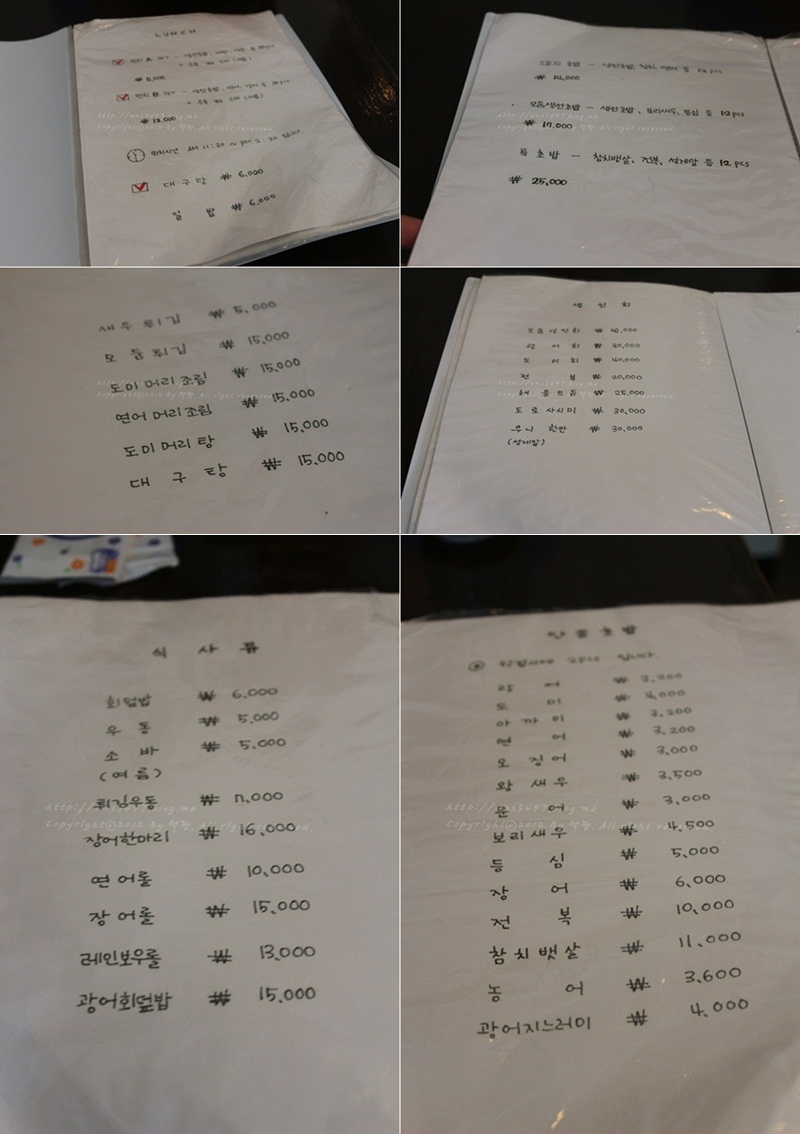 LUNCH
A SET
₩ 8,000
B SET
₩ 12,000
AM 11:30 ~ pm 2:30
대구탕 ₩ 6,000
알 밥 ₩ 6,000
오늘의 초밥 - 생선초밥, 참치, 연어 등 12 pcs
₩ 14,000
모듬생선초밥 - 생선초밥, 보리새우, 등심 등 12 pcs
₩ 17,000
특 초밥 - 참치뱃살, 전복, 성게알 등 12 pcs
₩ 25,000
새우 튀김 ₩ 5,000
모 듬 튀김 ₩ 15,000
도미 머리 조림 ₩ 15,000
연어 머리 조림 ₩ 15,000
도미 머리 탕 ₩ 15,000
대 구 탕 ₩ 15,000
생 선 회
모듬생선회 ₩
광 어 회 ₩ 40,000
도 미 회 ₩ 40,000
전 복 ₩ 20,000
해 물 모듬 ₩ 25,000
도로 사시미 ₩ 30,000
우니 한판 ₩ 30,000
(성게알)
식 사 류
회덮밥 ₩ 6,000
우 동 ₩ 5,000
소 바 ₩ 5,000
(여름)
튀김우동 ₩ 7,000
장어한마리 ₩ 16,000
연 어롤 ₩ 10,000
장 어롤 ₩ 15,000
레인보우롤 ₩ 13,000
광어회덮밥 ₩ 15,000
단 품 초 밥
한접시에 2pcs 입니다.
광 어 ₩ 3,200
도 미 ₩ 4,000
아 까 미 ₩ 3,200
연 어 ₩ 3,200
오 징 어 ₩ 3,000
왕 새 우 ₩ 3,500
문 어 ₩ 3,000
보리새우 ₩ 4,500
등 심 ₩ 5,000
장 어 ₩ 6,000
전 복 ₩ 10,000
참치뱃살 ₩ 11,000
농 어 ₩ 3,600
광어지느러미 ₩ 4,000